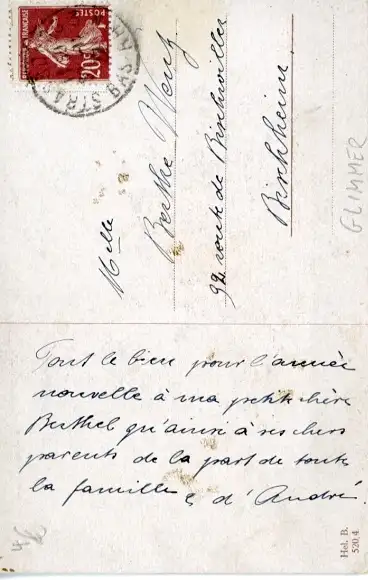 Mlle
Berthe Wenz
92 route de Bischwiller
Bischheim
GLIMMER
Tout le bien pour l'année
nouvelle à ma petite chère
Berthel qu'ainsi à ses chers
parents de la part de toute
la famille & d'André.
Hel. B.
520,4
POSTES
RÉPUBLIQUE FRANÇAISE
20c
STRASBOURG
BAS-RHIN